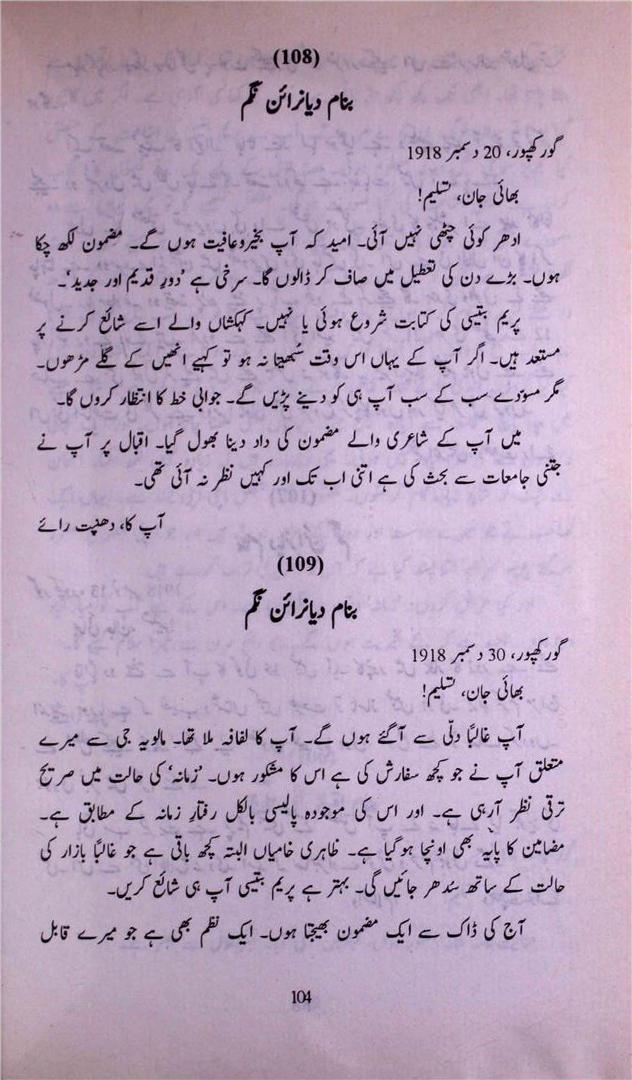 (108)
بنام دیانرائن نگم
گورکھپور، 20 دسمبر 1918
بھائی جان، تسلیم!
ادھر کوئی چٹھی نہیں آئی۔ امید کہ آپ بخیروعافیت ہوں گے۔ مضمون لکھ چکا
ہوں۔ بڑے دن کی تعطیل میں صاف کر ڈالوں گا۔ سرخی ہے 'دورِ قدیم اور جدید'۔
پریم بتیسی کی کتابت شروع ہوئی یا نہیں۔ کہکشاں والے اسے شائع کرنے پر
مستعد ہیں۔ اگر آپ کے یہاں اس وقت سُبھیتا نہ ہو تو کہیے انھیں کے گلے مڑھوں۔
مگر مسوّدے سب کے سب آپ ہی کو دینے پڑیں گے۔ جوابی خط کا انتظار کروں گا۔
میں آپ کے شاعری والے مضمون کی داد دینا بھول گیا۔ اقبال پر آپ نے
جتنی جامعات سے بحث کی ہے اتنی اب تک اور کہیں نظر نہ آئی تھی۔
آپ کا، دھنپت رائے
(109)
بنام دیانرائن نگم
گورکھپور، 30 دسمبر 1918
بھائی جان، تسلیم!
آپ غالبًا دلّی سے آگئے ہوں گے۔ آپ کا لفافہ ملا تھا۔ مالویہ جی سے میرے
متعلق آپ نے جو کچھ سفارش کی ہے اس کا مشکور ہوں۔ 'زمانہ' کی حالت میں صریح
ترقی نظر آرہی ہے۔ اور اس کی موجودہ پالیسی بالکل رفتارِ زمانہ کے مطابق ہے۔
مضامین کا پایہ بھی اونچا ہوگیا ہے۔ ظاہری خامیاں البتہ کچھ باقی ہے جو غالبًا بازار کی
حالت کے ساتھ سُدھر جائیں گی۔ بہتر ہے پریم بتیسی آپ ہی شائع کریں۔
آج کی ڈاک سے ایک مضمون بھیجتا ہوں۔ ایک نظم بھی ہے جو میرے قابل
104